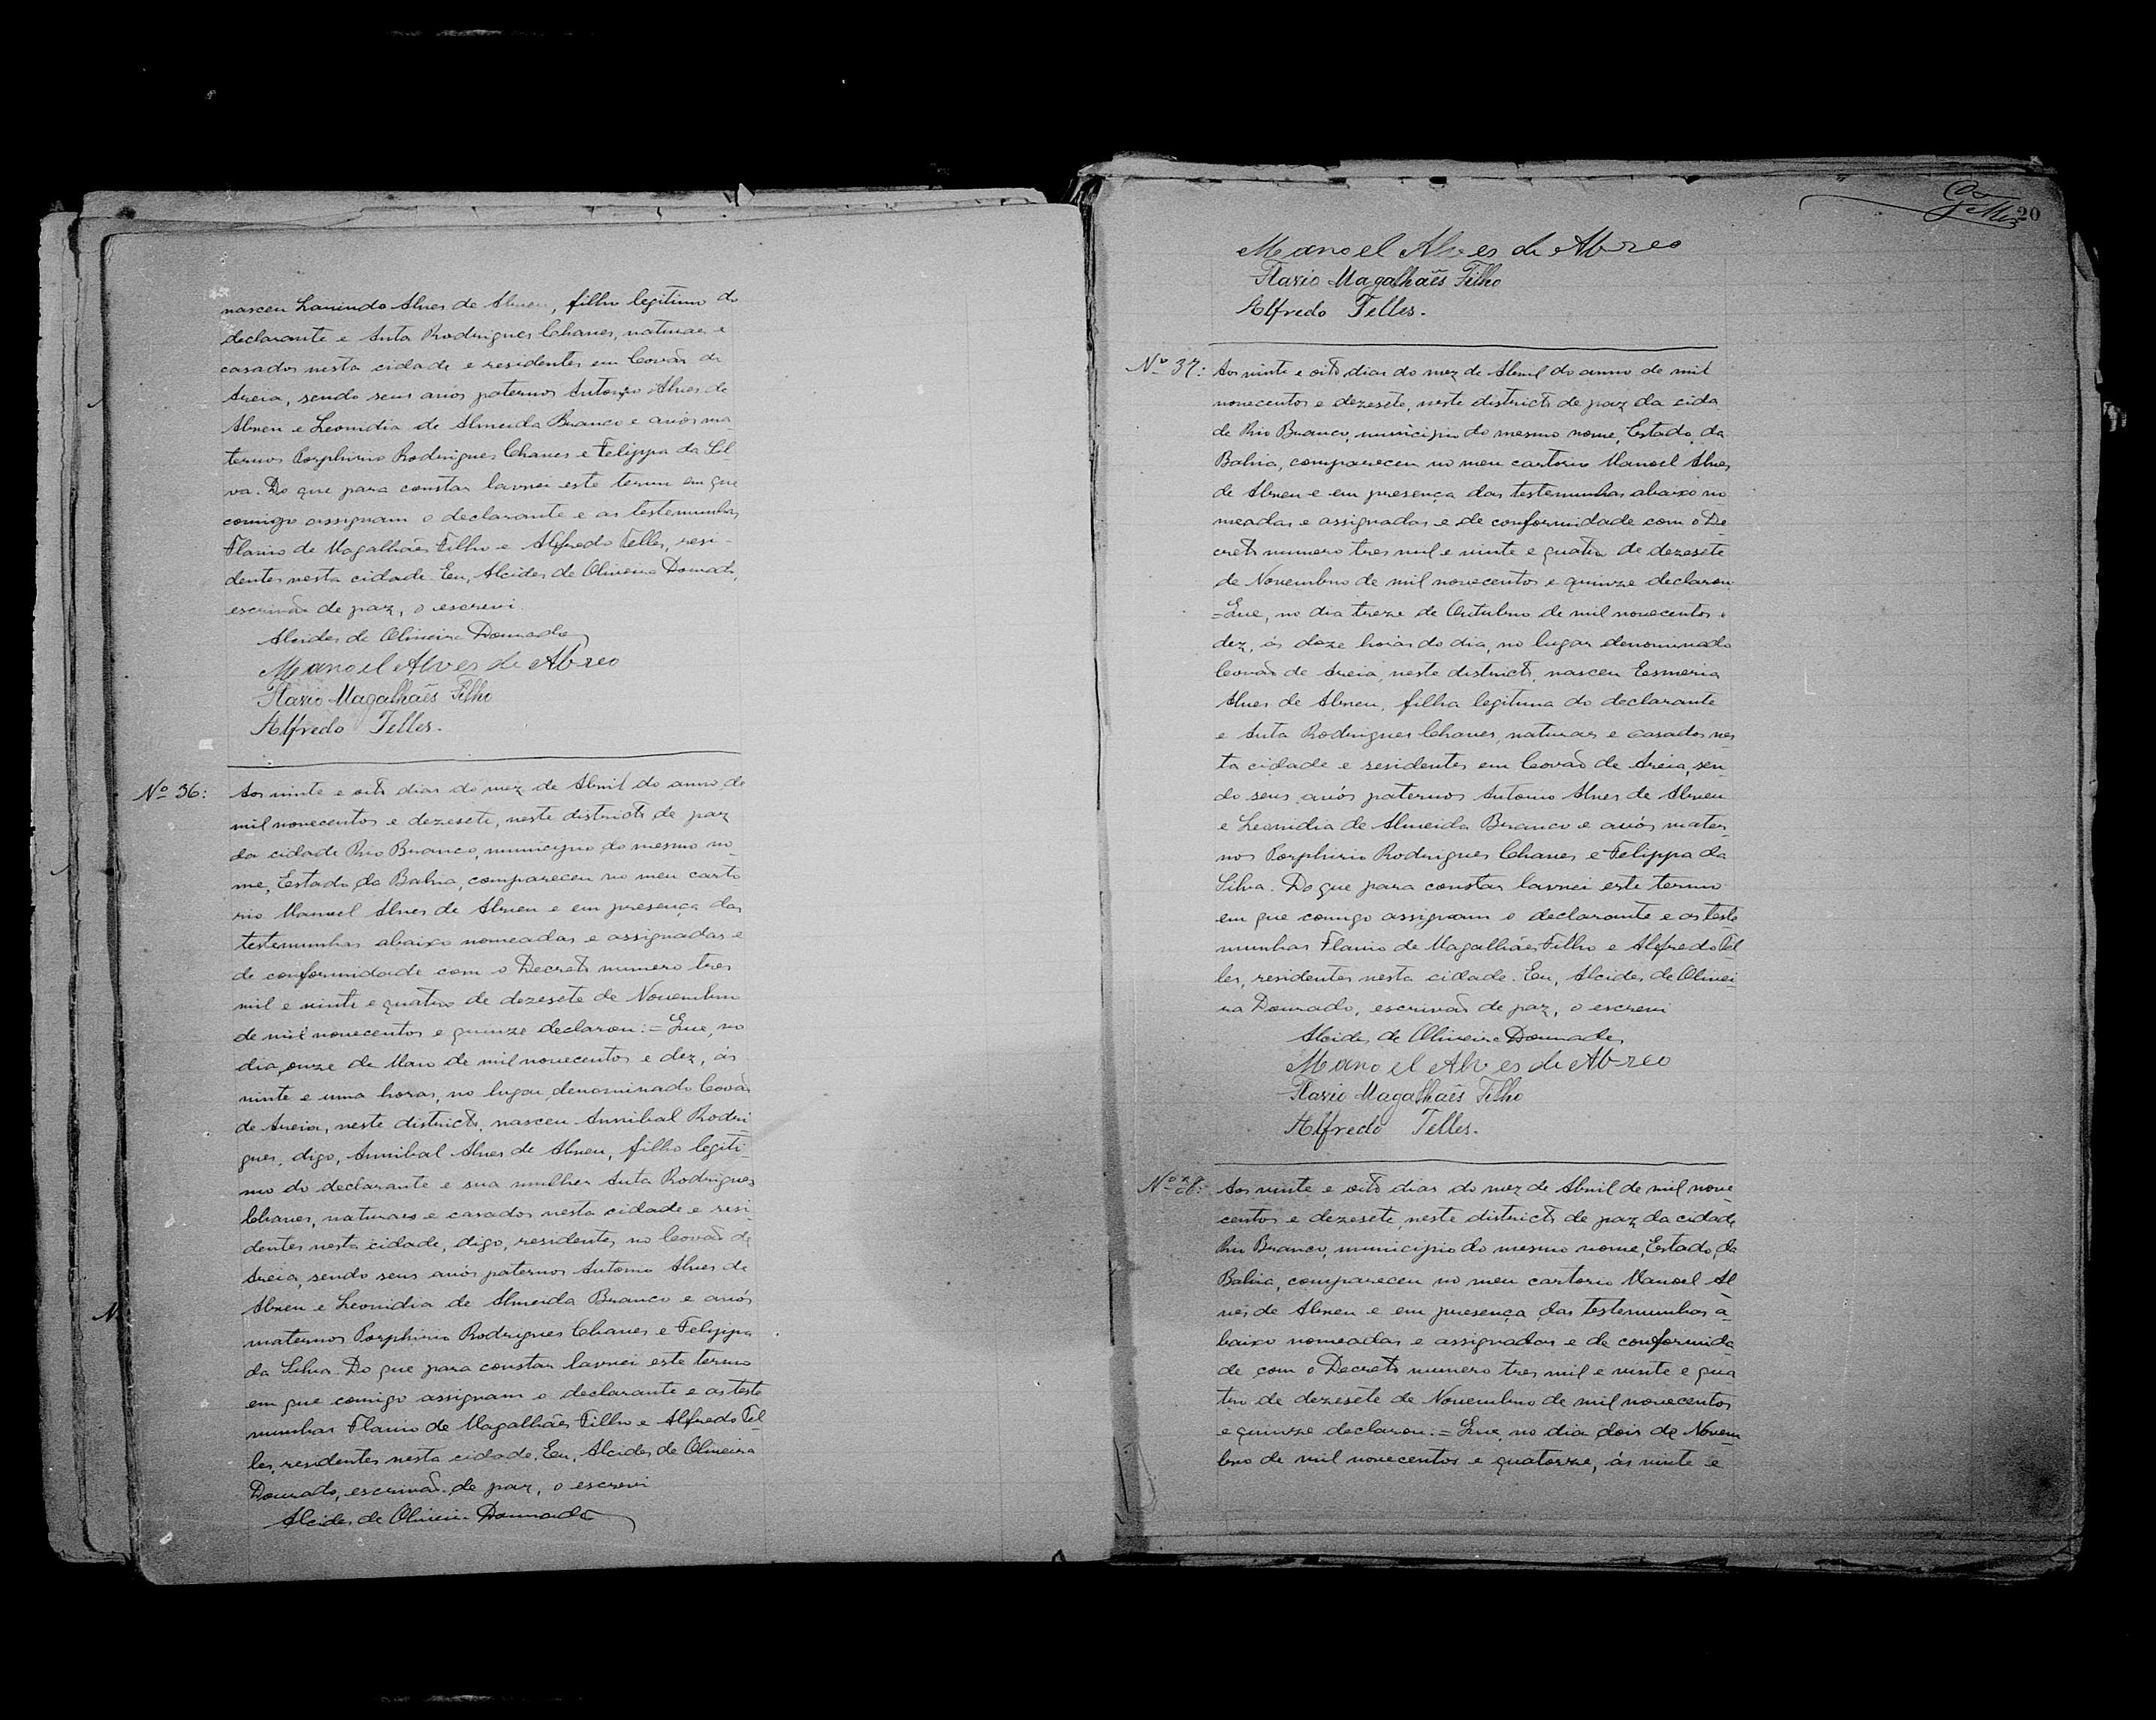 nasceu Laurindo Alves de Abreu, filho legitimo do
declarante e Anta Rodrigues Chaves, naturaes e
casados nesta cidade e residentes em Covão de
Areia, sendo seus avós paternos Antonio Alves de
Abreu e Leonidia de Almeida Branco e avós ma-
ternos Porphirio Rodrigues Chaves e Felippa da Sil
va. Do que para constar lavrei este termo em que
comigo assignam o declarante e as testemunhas
Flavio de Magalhães Filho e Alfredo Telles, resi-
dentes nesta cidade. Eu, Alcides de Oliveira Dourado,
escrivão de paz, o escrevi.
Alcides de Oliveira Dourado
Manoel Alves de Abreo
Flavio Magalhães Filho
Alfredo Telles.
Nº 36: Aos vinte e oito dias do mez de Abril do anno de
mil novecentos e dezesete, neste districto de paz
da cidade Rio Branco, municipio do mesmo no-
me, Estado da Bahia, compareceu no meu carto
rio Manoel Alves de Abreu e em presença das
testemunhas abaixo nomeadas e assignadas e
de conformidade com o Decreto numero tres
mil e vinte e quatro de dezesete de Novembro
de mil novecentos e quinze declarou: = Que, no
dia onze de Maio de mil novecentos e dez, ás
vinte e uma horas, no lugar denominado Covão
de Areia, neste districto, nasceu Annibal Rodri-
gues, digo, Annibal Alves de Abreu, filho legiti-
mo do declarante e sua mulher Anta Rodrigues
Chaves, naturaes e casados nesta cidade e resi-
dentes nesta cidade, digo, residentes no Covão de
Areia, sendo seus avós paternos Antonio Alves de
Abreu e Leonidia de Almeida Branco e avós
maternos Porphirio Rodrigues Chaves e Felippa
da Silva. Do que para constar lavrei este termo
em que comigo assignam o declarante e as teste
munhas Flavio de Magalhães Filho e Alfredo Tel-
les, residentes nesta cidade. Eu, Alcides de Oliveira
Dourado, escrivão de paz, o escrevi
Alcides de Oliveira Dourado
20
Manoel Alves de Abreo
Flavio Magalhães Filho
Alfredo Telles.
Nº 37: Aos vinte e oito dias do mez de Abril do anno de mil
novecentos e dezesete, neste districto de paz da cida
de Rio Branco, municipio do mesmo nome, Estado da
Bahia, compareceu no meu cartorio Manoel Alves
de Abreu e em presença das testemunhas abaixo no
meadas e assignadas e de conformidade com o De
creto numero tres mil e vinte e quatro de dezesete
de Novembro de mil novecentos e quinze declarou:
= Que, no dia treze de Outubro de mil novecentos e
dez, ás doze horas do dia, no lugar denominado
Covão de Areia, neste districto, nasceu Esmeria
Alves de Abreu, filha legitima do declarante
e Anta Rodrigues Chaves, naturaes e casados nes
ta cidade e residentes em Covão de Areia, sen-
do seus avós paternos Antonio Alves de Abreu
e Leonidia de Almeida Branco e avós mater-
nos Porphirio Rodrigues Chaves e Felippa da
Silva. Do que para constar lavrei este termo
em que comigo assignam o declarante e as teste
munhas Flavio de Magalhães Filho e Alfredo Tel
les, residentes nesta cidade. Eu, Alcides de Olivei-
ra Dourado, escrivão de paz, o escrevi
Alcides de Oliveira Dourado
Manoel Alves de Abreo
Flavio Magalhães Filho
Alfredo Telles.
Nº 38: Aos vinte e oito dias do mez de Abril de mil nove
centos e dezesete, neste districto de paz da cidade
Rio Branco, municipio do mesmo nome, Estado da
Bahia, compareceu no meu cartorio Manoel Al
ves de Abreu e em presença das testemunhas a-
baixo nomeadas e assignadas e de conformida
de com o Decreto numero tres mil e vinte e qua
tro de dezesete de Novembro de mil novecentos
e quinze declarou: = Que, no dia dois de Novem
bro de mil novecentos e quatorze, ás vinte e